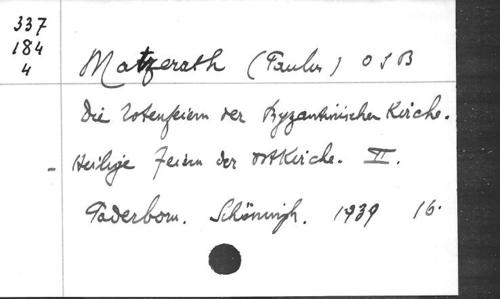 337
184
4
Matzerath (Paulus) OSB
Die Totenfeiern der Byzantinischen Kirche.
- Heilige Feiern der Ostkirche. II.
Paderborn. Schöningh. 1939 16.